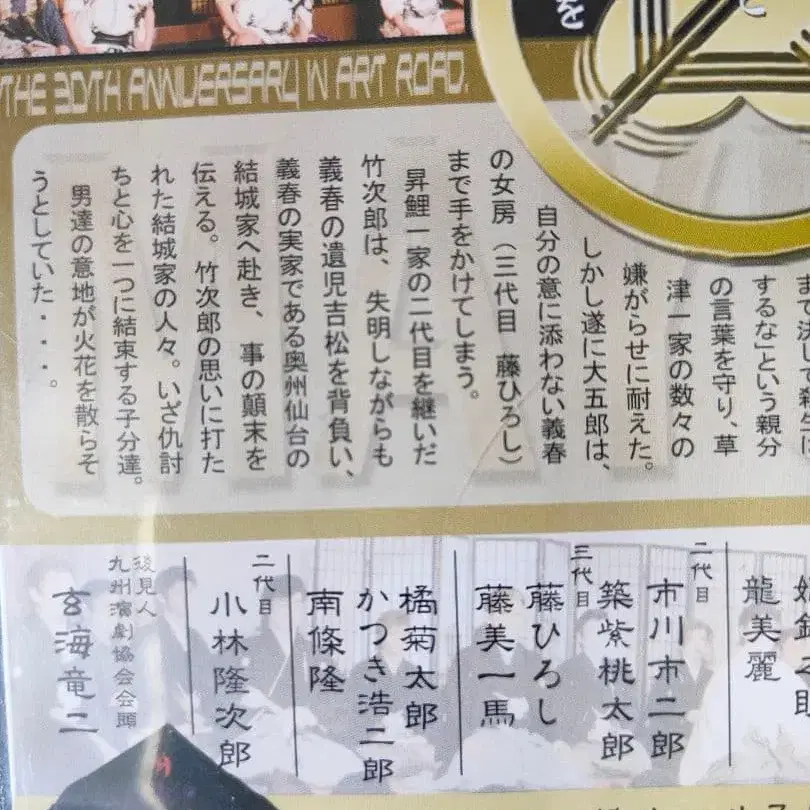 を
と
THE 30TH ANNIVERSARY IN ART ROAD.
するな」という親分
の言葉を守り、草
津一家の数々の
嫌がらせに耐えた。
しかし遂に大五郎は、
自分の意に添わない義春
の女房（三代目 藤ひろし）
まで手をかけてしまう。
昇鯉一家の二代目を継いだ
竹次郎は、失明しながらも
義春の遺児吉松を背負い、
義春の実家である奥州仙台の
結城家へ赴き、事の顛末を
伝える。竹次郎の思いに打た
れた結城家の人々。いざ仇討
ちと心を一つに結束する子分達。
男達の意地が火花を散らそ
うとしていた・・・。
龍美麗
二代目
市川市二郎
築紫桃太郎
三代目
藤ひろし
藤美一馬
橘菊太郎
かつき浩二郎
南條隆
二代目
小林隆次郎
後見人
九州演劇協会会頭
玄海竜二